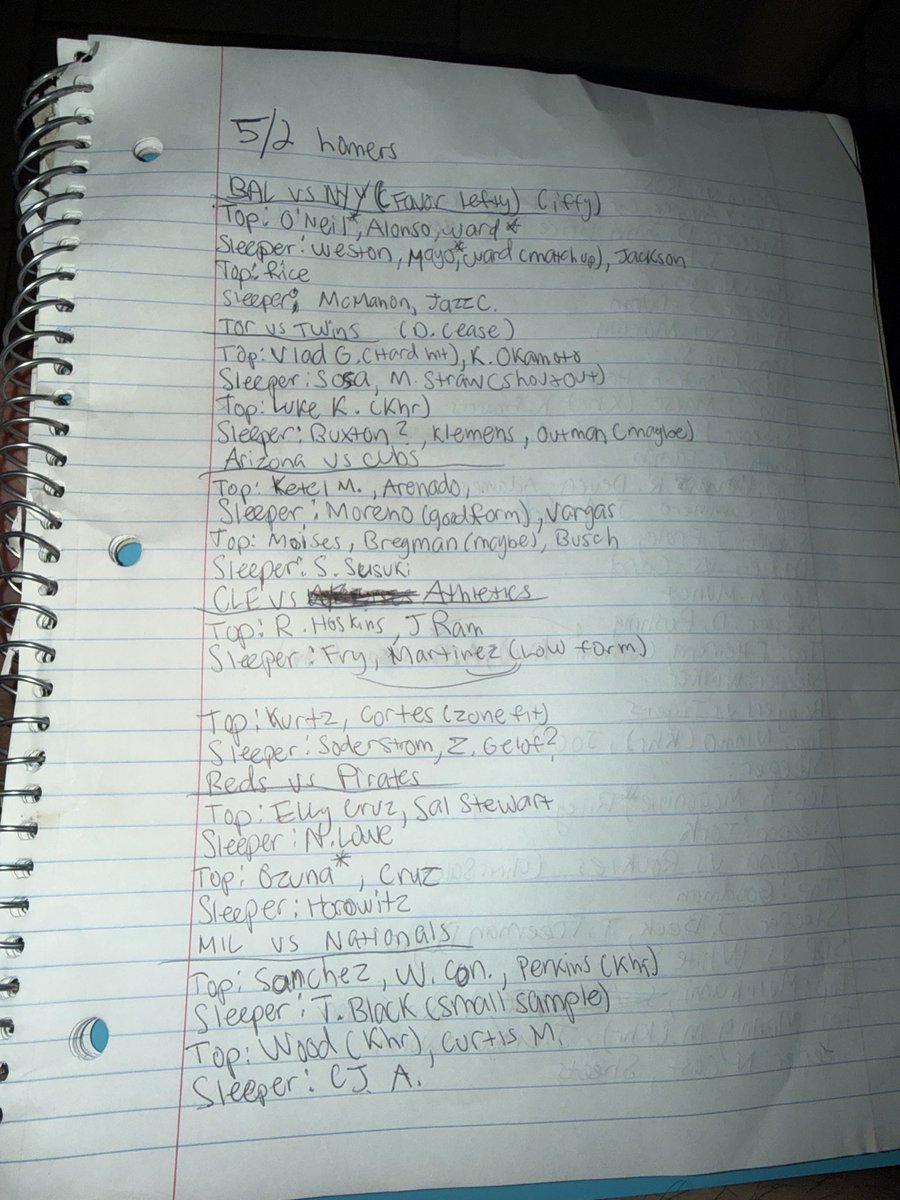 5/2 homers
BAL vs NYY (Favor lefty) (iffy)
Top: O'Neil*, Alonso, ward*
Sleeper: Weston, Mayo*, ward (matchup), Jackson
Top: Rice
Sleeper: McMahon, Jazz C.
TOR vs Twins (D. Cease)
Top: Vlad G. (Hard hit), K. Okamoto
Sleeper: Sosa, M. Straw (shoutout)
Top: Luke K. (Khr)
Sleeper: Buxton?, Klemens, Outman (maybe)
Arizona vs Cubs
Top: Ketel M., Arenado,
Sleeper: Moreno (good form), Vargas
Top: Moises, Bregman (maybe), Busch
Sleeper: S. Susuki
CLE vs Athletics
Top: R. Hoskins, J Ram
Sleeper: Fry, Martinez (Low form)
Top: Kurtz, Cortes (zone fit)
Sleeper: Soderstrom, Z. Gelof?
Reds vs Pirates
Top: Elly Cruz, Sal Stewart
Sleeper: N. Lowe
Top: Ozuna*, Cruz
Sleeper: Horowitz
MIL vs Nationals
Top: Samchez, W. Con., Perkins (Khr)
Sleeper: T. Black (small sample)
Top: Wood (Khr), Curtis M.
Sleeper: CJ A.